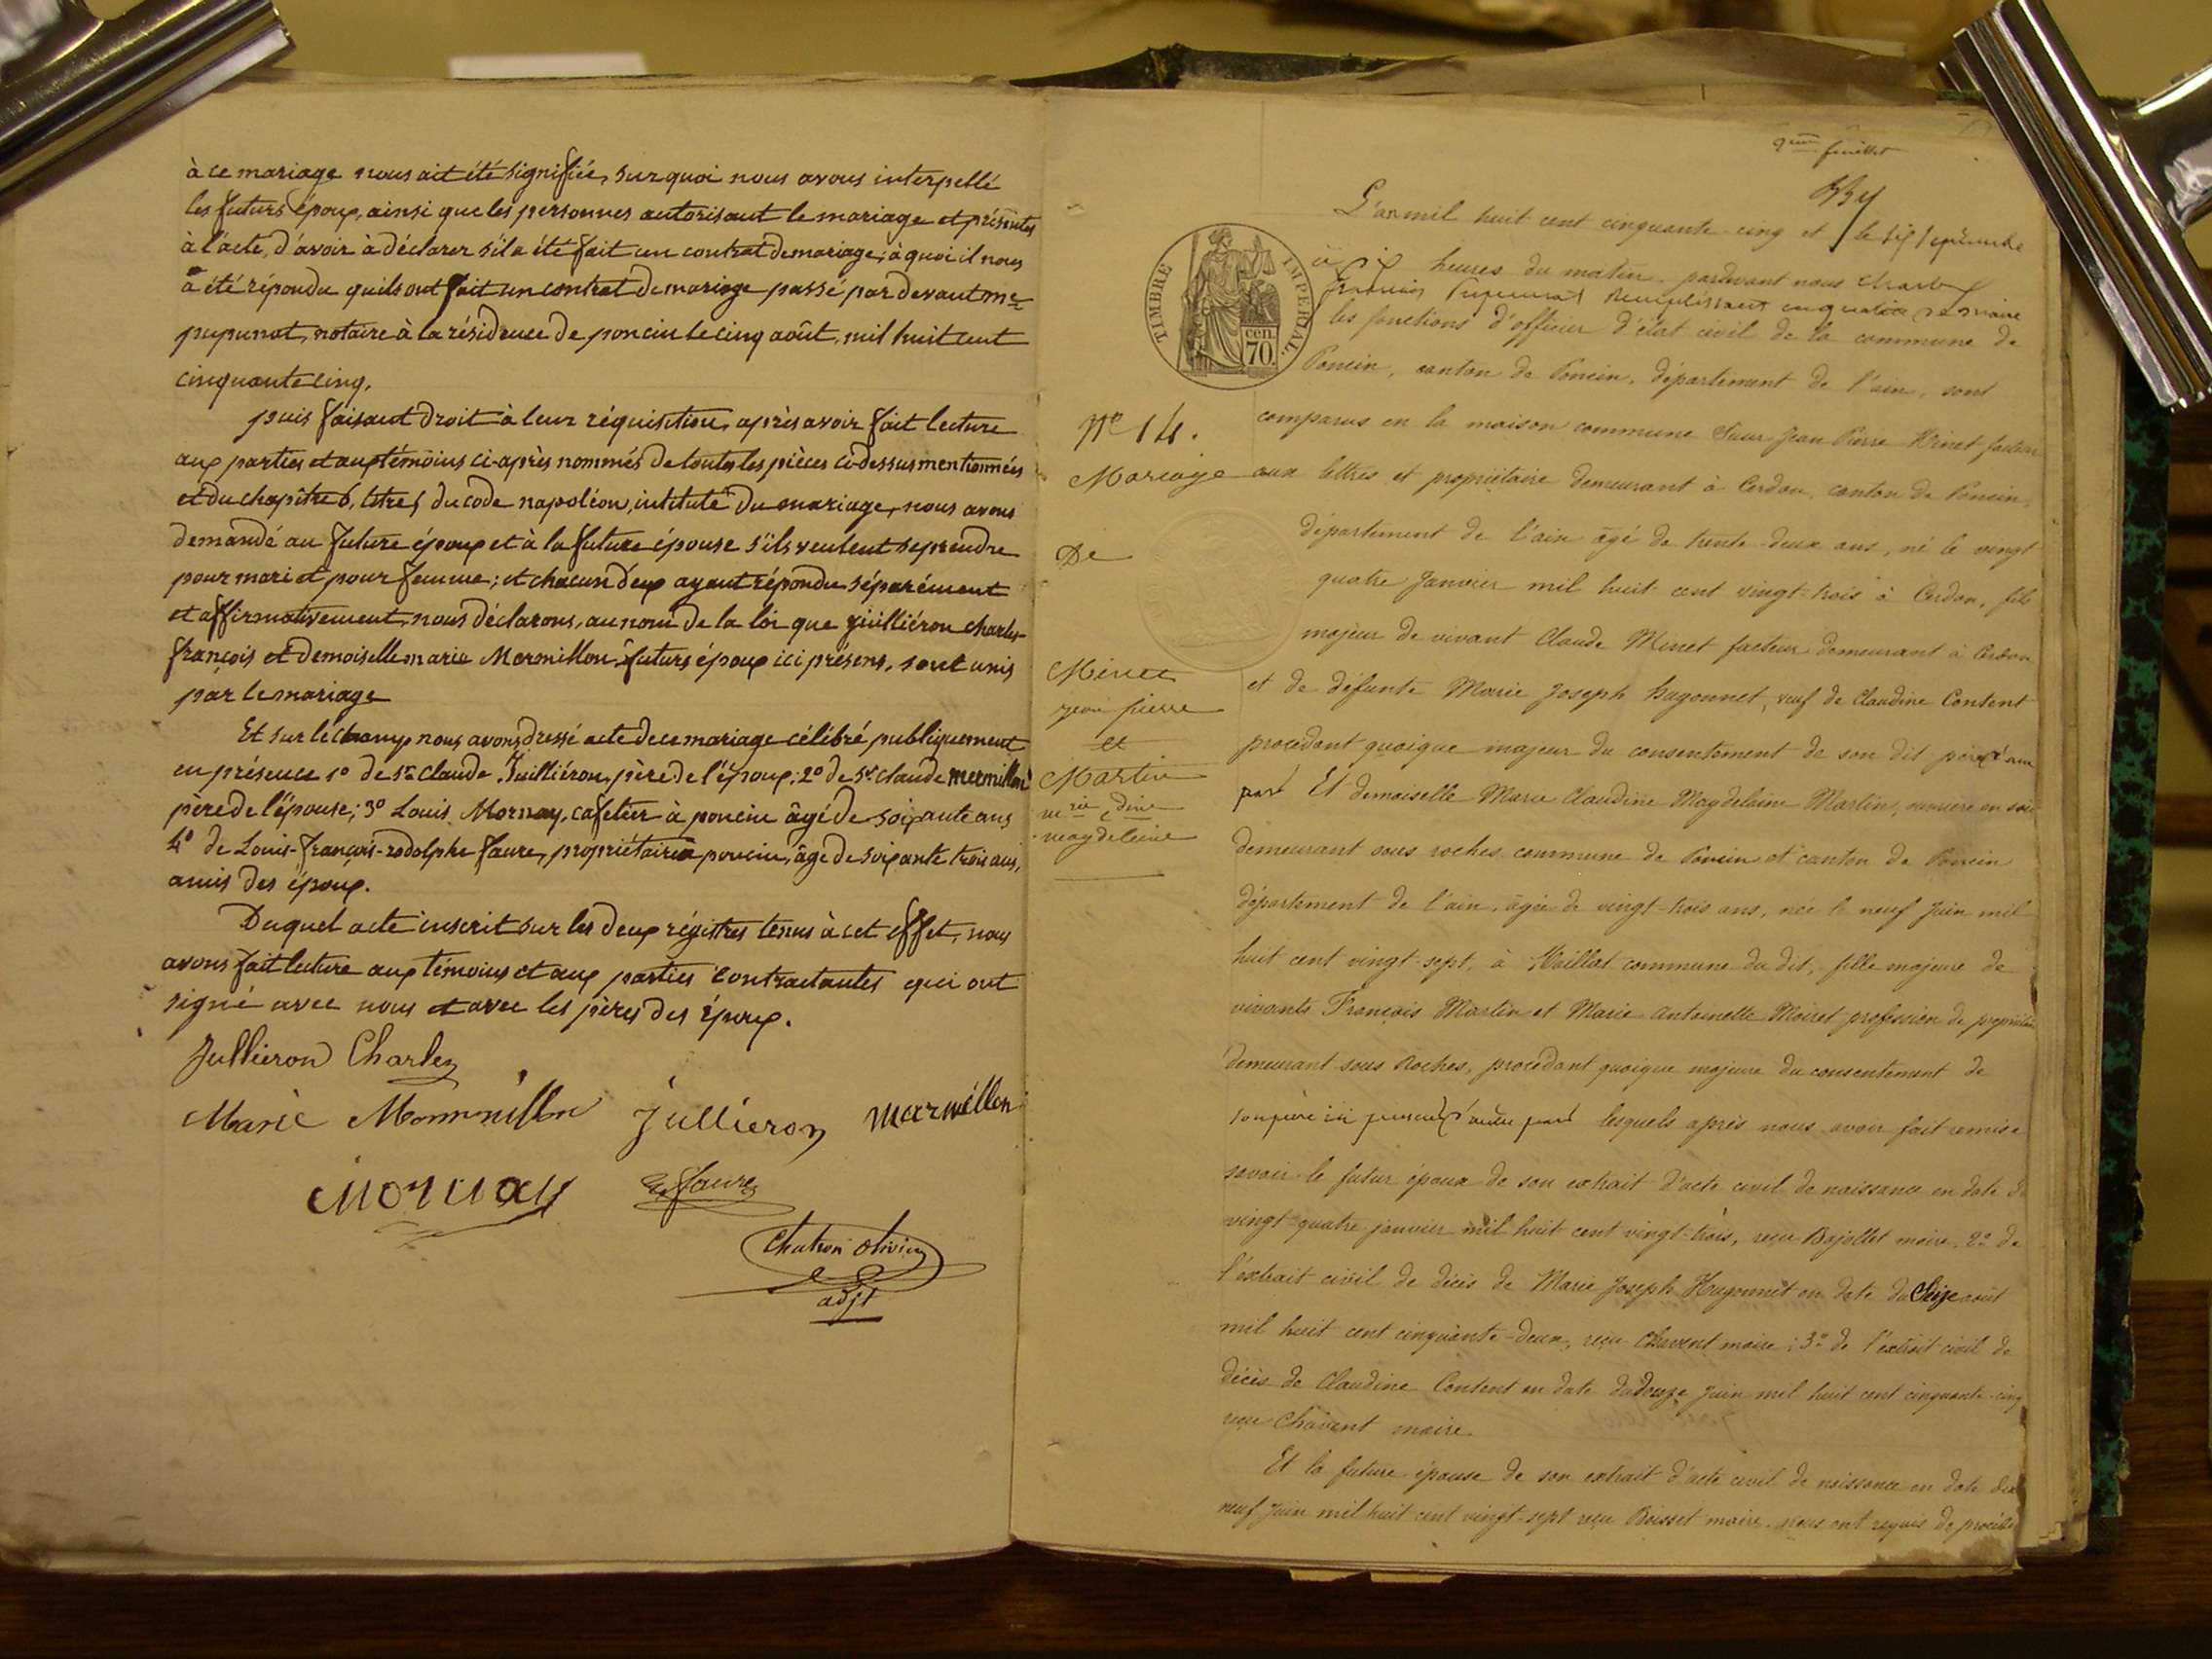 à ce mariage nous ait été signifiée, sur quoi nous avons interpellé
les futurs époux, ainsi que les personnes autorisant le mariage et présentes
à l'acte, d'avoir à déclarer s'il a été fait un contrat de mariage; à quoi il nous
a été répondu qu'ils ont fait un contrat de mariage passé par devant me
pupunat, notaire à la résidence de poncin le cinq août, mil huit cent
cinquante cinq.
puis faisant droit à leur réquisition, après avoir fait lecture
aux parties et aux témoins ci-après nommés de toutes les pièces ci-dessus mentionnées
et du chapitre 6, titre 5 du code napoléon, intitulé Du mariage, nous avons
demandé au future époux et à la future épouse s'ils veulent se prendre
pour mari et pour femme; et chacun d'eux ayant répondu séparément
et affirmativement, nous déclarons, au nom de la loi que juilliéron charles
françois et demoiselle marie Mermillon, futurs époux ici présens, sont unis
par le mariage
Et sur le champ nous avons dressé acte de ce mariage célébré publiquement
en présence 1° de sr. Claude Juilliéron, père de l'époux; 2° de sr. claude mermillon
père de l'épouse; 3° Louis Mornay, cafetier à poncin âgé de soixante ans
4° de Louis-françois-rodolphe faure, propriétaire à poncin, âgé de soixante trois ans,
amis des époux.
Duquel acte inscrit sur les deux régistres tenus à cet effet, nous
avons fait lecture aux témoins et aux parties contractantes qui ont
signé avec nous et avec les pères des époux.
Jullieron Charles
Marie Mermillon Jullieron Mermillon
Mornay faure
Chatron Olivier
adjt
feuillet
L'an mil huit cent cinquante-cinq et le six septembre
à dix heures du matin pardevant nous Charles
François Pupunat Remplissant en qualité de maire
les fonctions d'officier d'état civil de la commune de
Poncin, canton de Poncin, département de l'ain, sont
TIMBRE IMPERIAL.
cen.
70.
N° 14.
Mariage
De
Minet
jean pierre
et
Martin
mrie cdine
magdeleine
comparus en la maison commune Sieur Jean Pierre Minet facteur
aux lettres et propriétaire demeurant à Cerdon, canton de Poncin
département de l'ain âgé de trente-deux ans, né le vingt
quatre Janvier mil huit cent vingt-trois à Cerdon, fils
majeur de vivant Claude Minet facteur demeurant à Cerdon
et de défunte Marie Joseph hugonnet, veuf de Claudine Content
procédant quoique majeur du consentement de son dit père d'une
part Et demoiselle Marie Claudine Magdelaine Martin, ouvrière en soie
demeurant sous roches commune de Poncin et canton de Poncin
département de l'ain, âgée de vingt-trois ans, née le neuf juin mil
huit cent vingt-sept, à Maillat commune du dit, fille majeure de
vivants François Martin et Marie Antoinette Moiret profession de propriétaire
demeurant sous Roches, procédant quoique majeure du consentement de
son père ici présent d'autre part lesquels après nous avoir fait remise
savoir le futur époux de son extrait d'acte civil de naissance en date du
vingt-quatre janvier mil huit cent vingt-trois, reçu Bajollet maire. 2° de
l'extrait civil de décès de Marie Joseph Hugonnet en date du août
mil huit cent cinquante-deux, reçu Chavent maire; 3° de l'extrait civil de
décès de Claudine Content en date du douze juin mil huit cent cinquante-cinq
reçu Chavent maire.
Et la future épouse de son extrait d'acte civil de naissance en date du
neuf juin mil huit cent vingt-sept reçu Boisset maire. nous ont requis de procéder